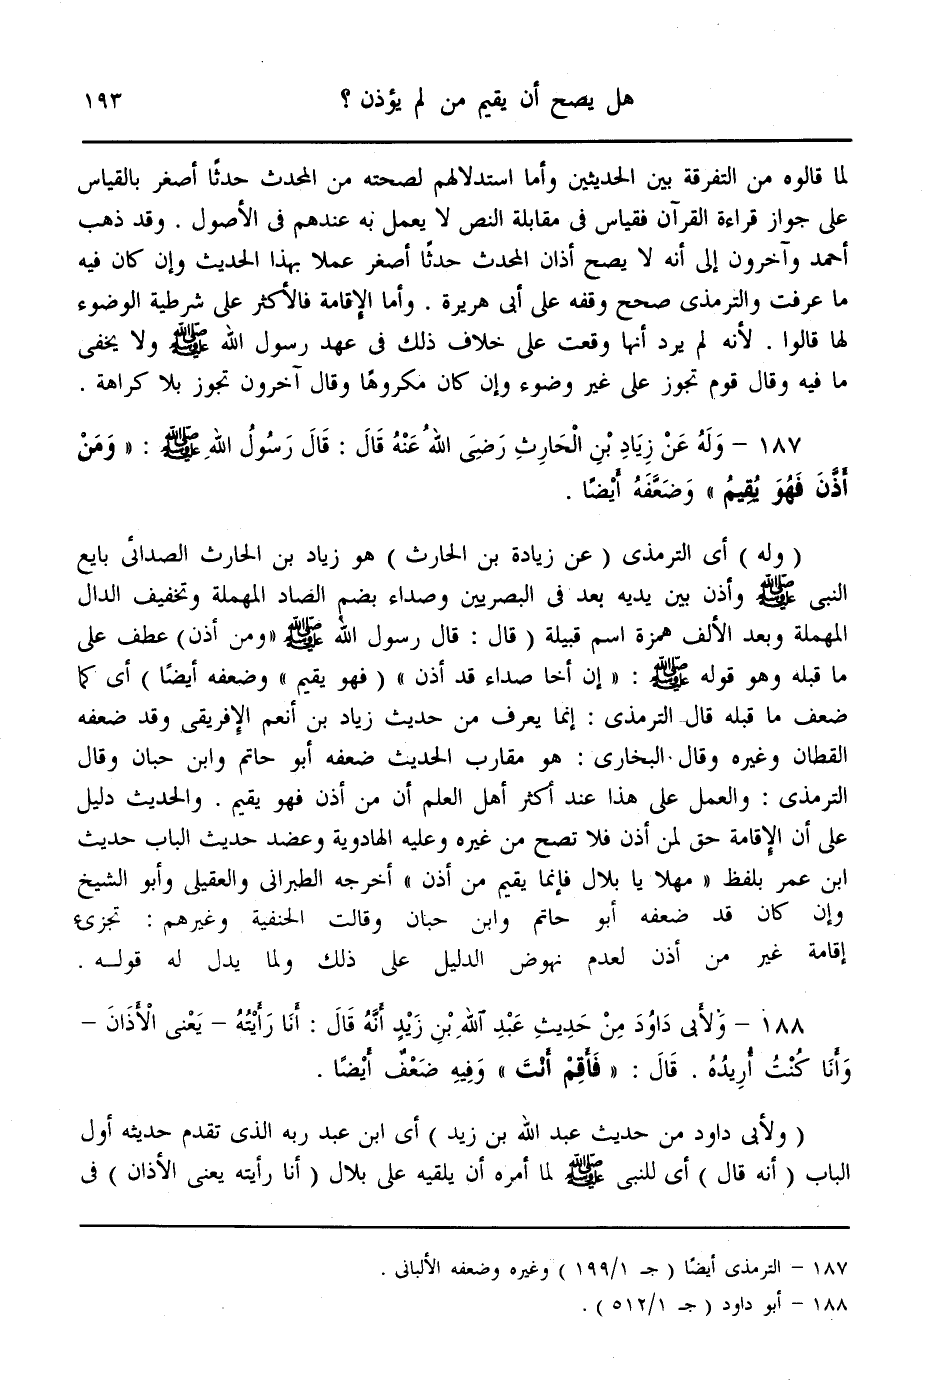 هل يصح أن يقيم من لم يؤذن ؟ ١٩٣
لما قالوه من التفرقة بين الحديثين وأما استدلالهم لصحته من المحدث حدثًا أصغر بالقياس
على جواز قراءة القرآن فقياس فى مقابلة النص لا يعمل به عندهم فى الأصول . وقد ذهب
أحمد وآخرون إلى أنه لا يصح أذان المحدث حدثًا أصغر عملا بهذا الحديث وإن كان فيه
ما عرفت والترمذى صحح وقفه على أبى هريرة . وأما الإقامة فالأكثر على شرطية الوضوء
لها قالوا . لأنه لم يرد أنها وقعت على خلاف ذلك فى عهد رسول الله ﷺ ولا يخفى
ما فيه وقال قوم تجوز على غير وضوء وإن كان مكروهًا وقال آخرون تجوز بلا كراهة .
١٨٧ – وَلَهُ عَنْ زِيَادِ بْنِ الْحَارِثِ رَضِىَ اللهُ عَنْهُ قَالَ : قَالَ رَسُولُ اللهِ ﷺ : « وَمَنْ
أَذَّنَ فَهُوَ يُقِيمُ » وَضَعَّفَهُ أَيْضًا .
( وله ) أى الترمذى ( عن زيادة بن الحارث ) هو زياد بن الحارث الصدائى بايع
النبى ﷺ وأذن بين يديه بعد فى البصريين وصداء بضم الصاد المهملة وتخفيف الدال
المهملة وبعد الألف همزة اسم قبيلة ( قال : قال رسول الله ﷺ «ومن أذن) عطف على
ما قبله وهو قوله ﷺ : « إن أخا صداء قد أذن » ( فهو يقيم » وضعفه أيضًا ) أى كما
ضعف ما قبله قال الترمذى : إنما يعرف من حديث زياد بن أنعم الإفريقى وقد ضعفه
القطان وغيره وقال البخارى : هو مقارب الحديث ضعفه أبو حاتم وابن حبان وقال
الترمذى : والعمل على هذا عند أكثر أهل العلم أن من أذن فهو يقيم . والحديث دليل
على أن الإقامة حق لمن أذن فلا تصح من غيره وعليه الهادوية وعضد حديث الباب حديث
ابن عمر بلفظ « مهلا يا بلال فإنما يقيم من أذن » أخرجه الطبرانى والعقيلى وأبو الشيخ
وإن كان قد ضعفه أبو حاتم وابن حبان وقالت الحنفية وغيرهم : تجزىء
إقامة غير من أذن لعدم نهوض الدليل على ذلك ولما يدل له قولـه .
١٨٨ – وَلأَبى دَاوُدَ مِنْ حَدِيثِ عَبْدِ اللهِ بْنِ زَيْدٍ أَنَّهُ قَالَ : أَنَا رَأَيْتُهُ – يَعْنى الْأَذَانَ –
وَأَنَا كُنْتُ أُرِيدُهُ . قَالَ : « فَأَقِمْ أَنْتَ » وَفِيهِ ضَعْفٌ أَيْضًا .
( ولأبى داود من حديث عبد الله بن زيد ) أى ابن عبد ربه الذى تقدم حديثه أول
الباب ( أنه قال ) أى للنبى ﷺ لما أمره أن يلقيه على بلال ( أنا رأيته يعنى الأذان ) فى
١٨٧ – الترمذى أيضًا ( جـ ١/١٩٩ ) وغيره وضعفه الألبانى .
١٨٨ – أبو داود ( جـ ١/٥١٢ ) .